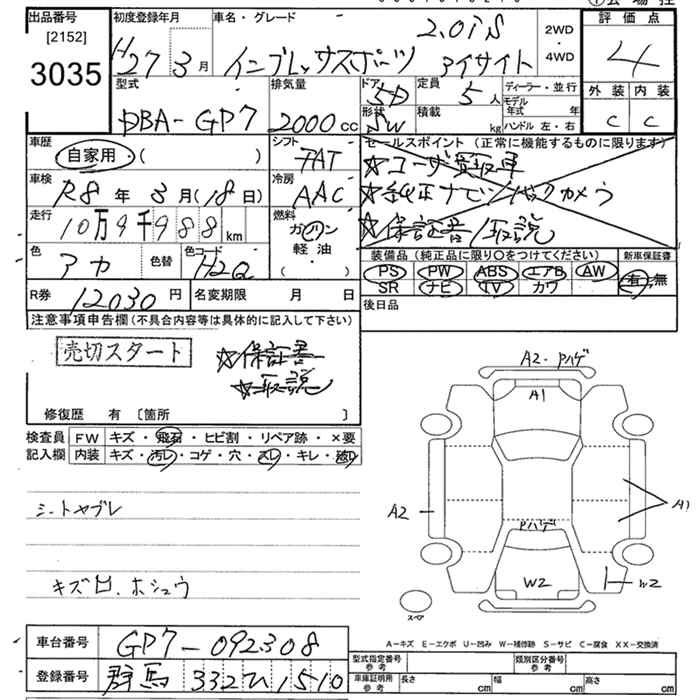 出品番号 初度登録年月 車名・グレード 2.0iS 2WD・4WD 評価点
[2152]
3035 H27年3月 インプレッサスポーツ アイサイト 4
型式 排気量 ドア 定員 ディーラー・並行 外装 内装
DBA-GP7 2000cc 5D 5人 モデル 年式 年
形状 積載 C C
SW kg ハンドル 左・右
車歴 シフト セールスポイント (正常に機能するものに限ります)
自家用・( ) FAT ☆ユーザー買取車
車検 冷房 ☆純正ナビ/バックカメラ
R8年3月(18日) AAC ☆保証書/取説
走行 燃料
10万9千988km ガソリン
軽油
( ・ )
色 色替 色コード 装備品 (純正品に限り○をつけてください) 新車保証書
アカ H2Q PS PW ABS エアB AW 有・無
SR ナビ TV カワ
R券 12030円 名変期限 月 日 後日品
注意事項申告欄(不具合内容等は具体的に記入して下さい)
売切スタート ☆保証書
☆取説
修復歴 有 〔箇所 〕
検査員 FW キズ・飛石・ヒビ割・リペア跡・×要
記入欄 内装 キズ・汚レ・コゲ・穴・スレ・キレ
A2・Pハゲ
A1
シートヤブレ
A2 A1
Pハゲ
キズ凹. ホシュウ
W2 W2
スペア
A-キズ E-エクボ U-凹み W-補修跡 S-サビ C-腐食 XX-交換済
車台番号 GP7-092308 型式指定番号 参考 類別区分番号 参考
登録番号 群馬 332ひ1510 車庫証明用 参考 長さ cm 幅 cm 高さ cm